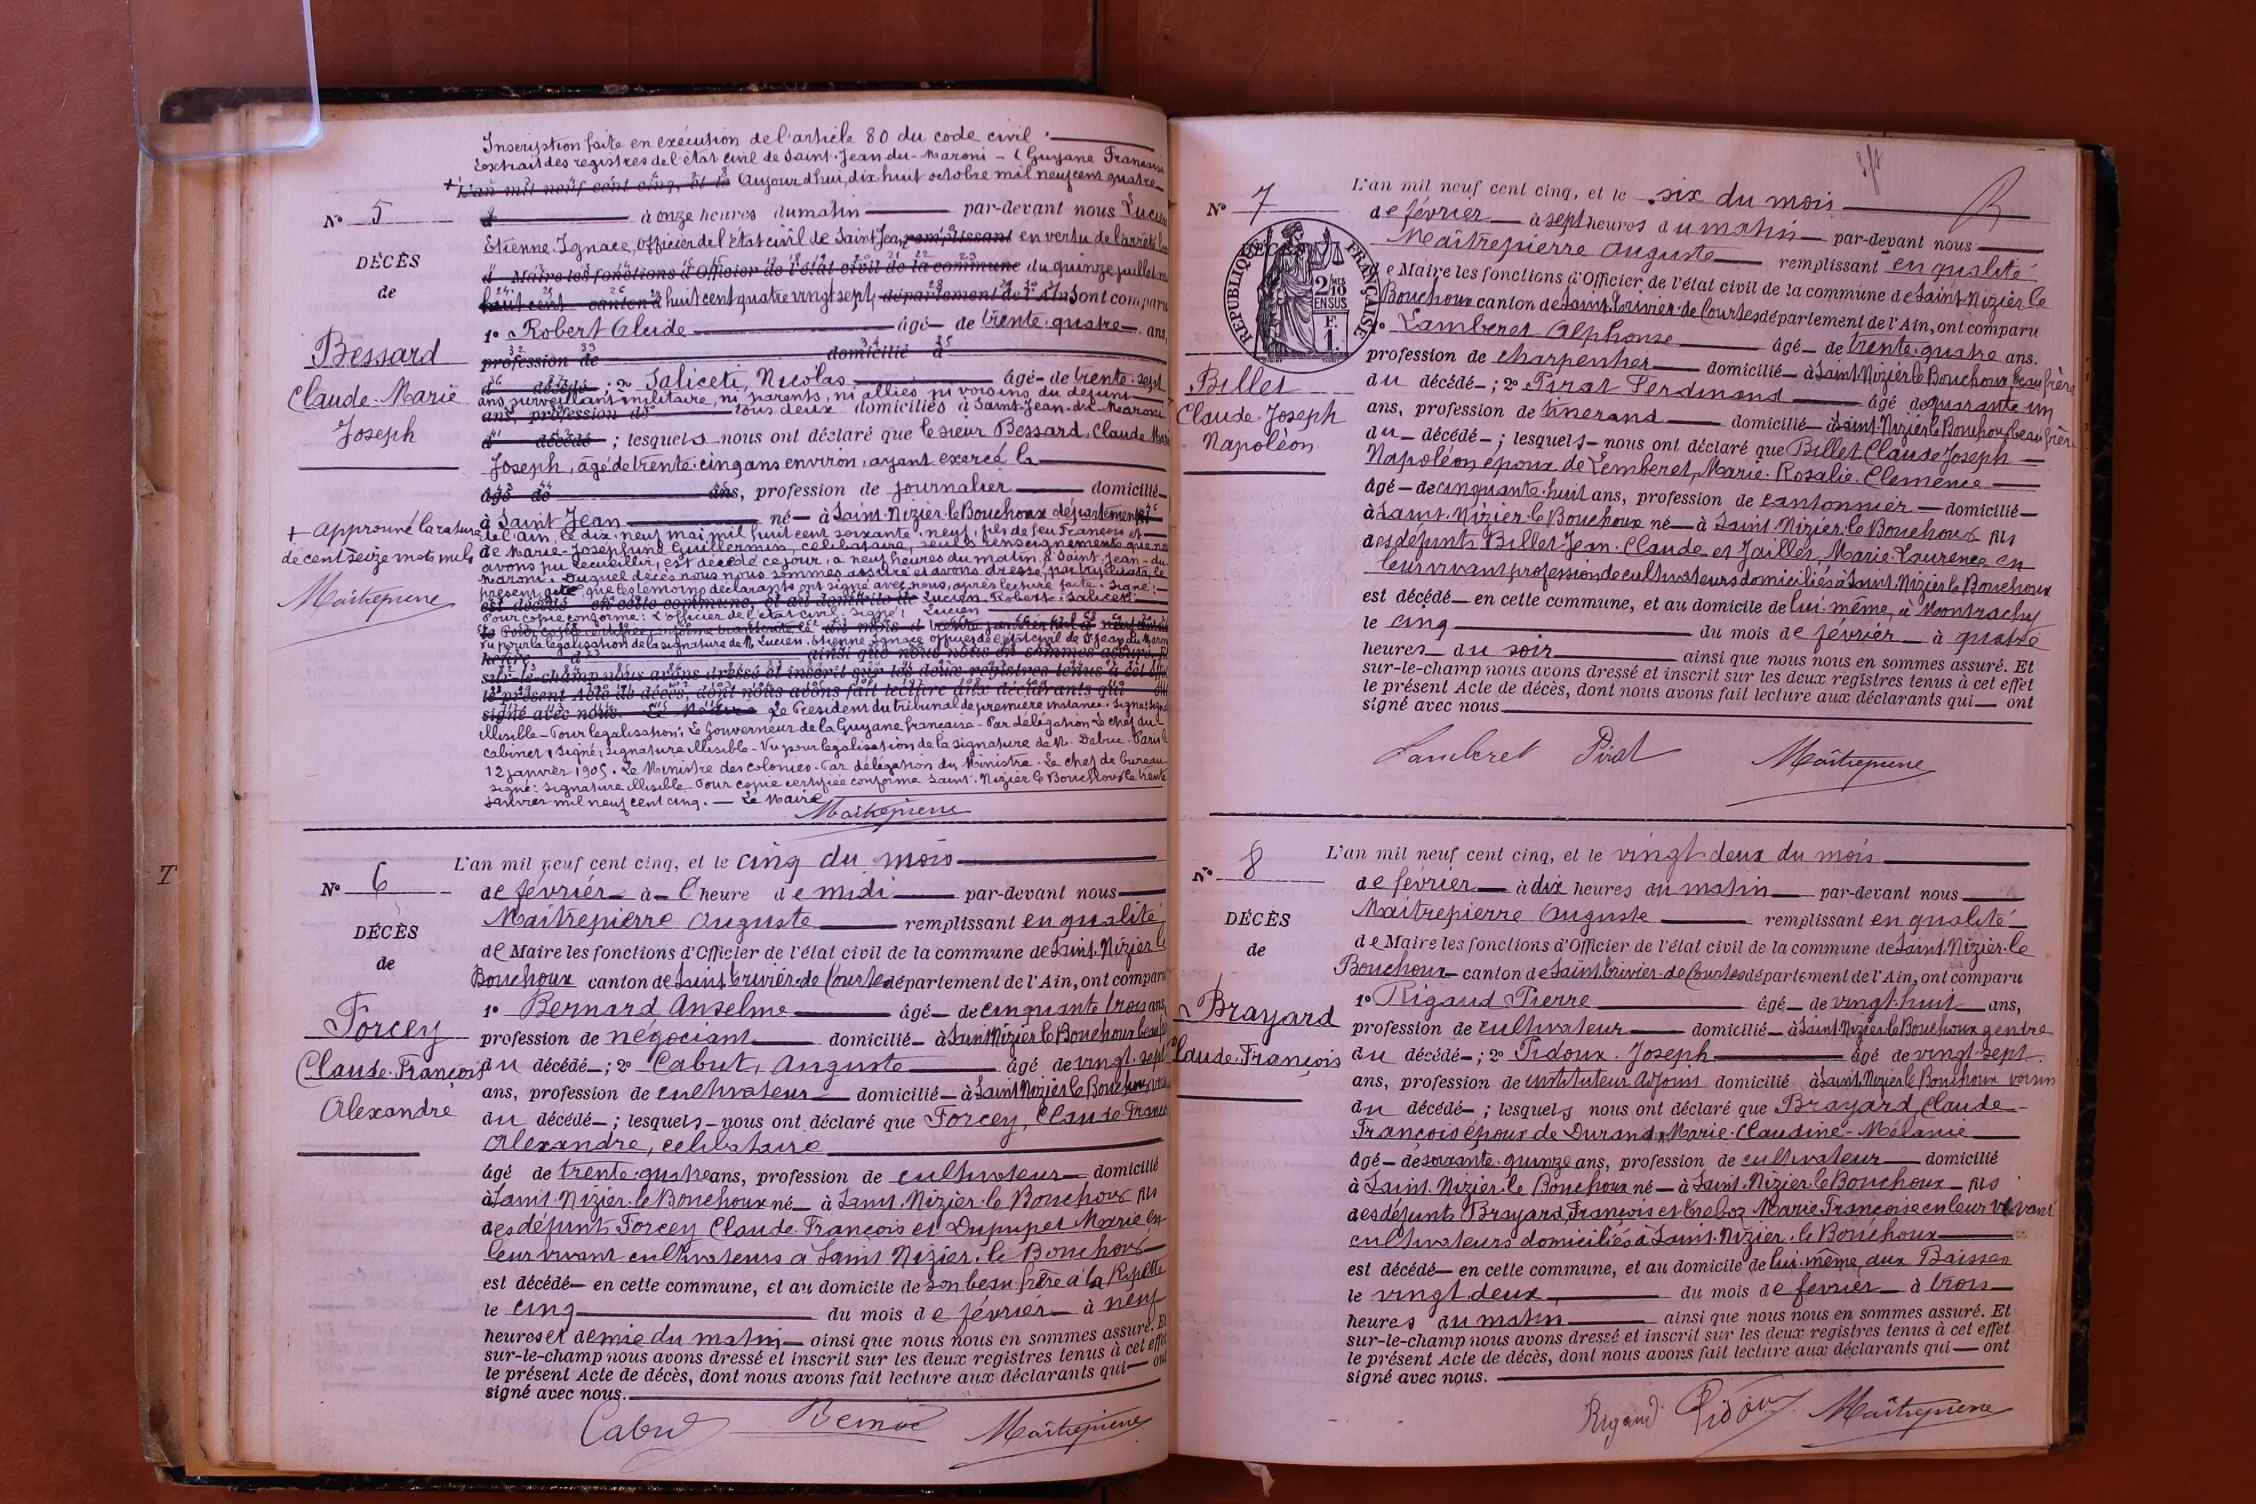 Inscription faite en exécution de l'article 80 du code civil.
Extrait des registres de l'état civil de Saint-Jean-du-Maroni - (Guyane Française
+ L'an mil neuf cent cinq, et le Aujourd'hui, dix-huit octobre mil neuf cent quatre
N° 5
à onze heures du matin par-devant nous Lucien
Etienne Ignace, Officier de l'état civil de Saint Jean, remplissant en vertu de l'arrêté
DÉCÈS
d Maire les fonctions d'Officier de l'état civil de la commune du quinze juillet
de
huit cent canton d huit cent quatre vingt sept, département de l'Ain, ont comparu
1° Robert Clude âgé de trente-quatre ans,
Bessard
profession de domicilié à
d décédé ; 2° Saliceti, Nicolas âgé de trente-sept
Claude-Marie
ans, surveillant militaire, ni parents, ni alliés, ni voisins du défunt
ans, profession de tous deux domiciliés à Saint-Jean-du-Maroni
Joseph
d décédé ; lesquels nous ont déclaré que le sieur Bessard, Claude Marie
Joseph, âgé de trente-cinq ans environ, ayant exercé la
âgé de ans, profession de journalier domicilié
à Saint Jean né à Saint-Nizier-le-Bouchoux département
+ approuvé la rature
de l'ain, le dix-neuf mai mil huit cent soixante-neuf, fils de feu François et
de cent seize mots nuls
de Marie-Josephine Guillermin, célibataire, seuls renseignements que nous
avons pu recueillir, est décédé ce jour, à neuf heures du matin, à Saint-Jean-du-
Maroni. Duquel décès nous nous sommes assuré et avons dressé, par triplicata, le
Maîtrepierre
présent acte, que les témoins déclarants ont signé avec nous, après lecture faite. Signé :
est décédé en cette commune, et au domicile de Lucien. Robert. Saliceti.
Pour copie conforme : L'officier de l'état civil. Signé : Lucien
Vu pour la légalisation de la signature de M. Lucien, Etienne Ignace officier de l'état civil de St Jean du Maroni
heure d ainsi que nous nous en sommes assuré. Et
sur-le-champ nous avons dressé et inscrit sur les deux registres tenus à cet effet
le présent Acte de décès, dont nous avons fait lecture aux déclarants qui ont
signé avec nous. Le Maire Le Président du tribunal de première instance. Signé : Signature
illisible - Pour légalisation : Le Gouverneur de la Guyane française - Par délégation Le chef du
cabinet, Signé : Signature illisible - Vu pour légalisation de la signature de M. Debuc. Paris le
12 janvier 1905. Le Ministre des colonies. Par délégation du Ministre. Le chef de bureau
signé : signature illisible. Pour copie certifiée conforme Saint-Nizier le Bouchoux le trente
Janvier mil neuf cent cinq. - Le Maire
Maîtrepierre
L'an mil neuf cent cinq, et le cinq du mois
N° 6
de février à l'heure de midi par-devant nous
Maîtrepierre Auguste remplissant en qualité
DÉCÈS
de Maire les fonctions d'Officier de l'état civil de la commune de Saint-Nizier le
de
Bouchoux canton de Saint-Trivier-de-Courtes département de l'Ain, ont comparu
1° Bernard Anselme âgé de cinquante trois ans,
Forcey
profession de négociant domicilié à Saint-Nizier le Bouchoux beau f
Claude-François
du décédé ; 2° Cabut, Auguste âgé de vingt-sept
ans, profession de cultivateur domicilié à Saint-Nizier le Bouchoux voisin
Alexandre
du décédé ; lesquels nous ont déclaré que Forcey, Claude-François
Alexandre, célibataire
âgé de trente-quatre ans, profession de cultivateur domicilié
à Saint-Nizier-le-Bouchoux né à Saint-Nizier-le Bouchoux fils
des défunts Forcey Claude-François et Dupupet Marie en
leur vivant cultivateurs à Saint Nizier-le Bouchoux
est décédé en cette commune, et au domicile de son beau frère à la Ripette
le cinq du mois de février à neuf
heures et demie du matin, ainsi que nous nous en sommes assuré. Et
sur-le-champ nous avons dressé et inscrit sur les deux registres tenus à cet effet
le présent Acte de décès, dont nous avons fait lecture aux déclarants qui ont
signé avec nous.
Cabut Bernard Maîtrepierre
L'an mil neuf cent cinq, et le six du mois
N° 7
de février à sept heures du matin par-devant nous
Maîtrepierre Auguste remplissant en qualité
de Maire les fonctions d'Officier de l'état civil de la commune de Saint-Nizier le
Bouchoux canton de Saint-Trivier-de-Courtes département de l'Ain, ont comparu
RÉPUBLIQUE FRANÇAISE
2/10 EN SUS
F. 1.
1° Lamberet Alphonse âgé de trente-quatre ans.
profession de charpentier domicilié à Saint-Nizier le Bouchoux, beau frère
Billet
du décédé ; 2° Pirat Ferdinand âgé de quarante un
Claude-Joseph
ans, profession de tisserand domicilié à Saint-Nizier le Bouchoux beau frère
Napoléon
du décédé ; lesquels nous ont déclaré que Billet Claude Joseph
Napoléon époux de Lemberet, Marie-Rosalie-Clémence
âgé de cinquante-huit ans, profession de cantonnier domicilié
à Saint-Nizier-le Bouchoux né à Saint-Nizier-le Bouchoux fils
des défunts Billet Jean-Claude et Jaillet, Marie-Laurence en
leur vivant profession de cultivateurs domiciliés à Saint-Nizier le Bouchoux
est décédé en cette commune, et au domicile de lui-même, à Montrachy
le cinq du mois de février à quatre
heures du soir ainsi que nous nous en sommes assuré. Et
sur-le-champ nous avons dressé et inscrit sur les deux registres tenus à cet effet
le présent Acte de décès, dont nous avons fait lecture aux déclarants qui ont
signé avec nous
Lamberet Pirat Maîtrepierre
L'an mil neuf cent cinq, et le vingt-deux du mois
N° 8
de février à dix heures du matin par-devant nous
Maîtrepierre Auguste remplissant en qualité
DÉCÈS
de Maire les fonctions d'Officier de l'état civil de la commune de Saint-Nizier-le
de
Bouchoux canton de Saint-Trivier-de-Courtes département de l'Ain, ont comparu
1° Rigaud Pierre âgé de vingt-huit ans,
Brayard
profession de cultivateur domicilié à Saint-Nizier le Bouchoux gendre
Claude-François
du décédé ; 2° Pidoux Joseph âgé de vingt-sept
ans, profession de instituteur adjoint domicilié à Saint-Nizier le Bouchoux voisin
du décédé ; lesquels nous ont déclaré que Brayard, Claude-
François époux de Durand, Marie-Claudine-Mélanie
âgé de soixante-quinze ans, profession de cultivateur domicilié
à Saint-Nizier-le Bouchoux né à Saint-Nizier-le Bouchoux fils
des défunts Brayard, François et Treboz Marie Françoise en leur vivant
cultivateurs domiciliés à Saint-Nizier-le Bouchoux
est décédé en cette commune, et au domicile de lui-même, aux Baisses
le vingt deux, du mois de février à trois
heures du matin ainsi que nous nous en sommes assuré. Et
sur-le-champ nous avons dressé et inscrit sur les deux registres tenus à cet effet
le présent Acte de décès, dont nous avons fait lecture aux déclarants qui ont
signé avec nous.
Rigaud Pidoux Maîtrepierre
T